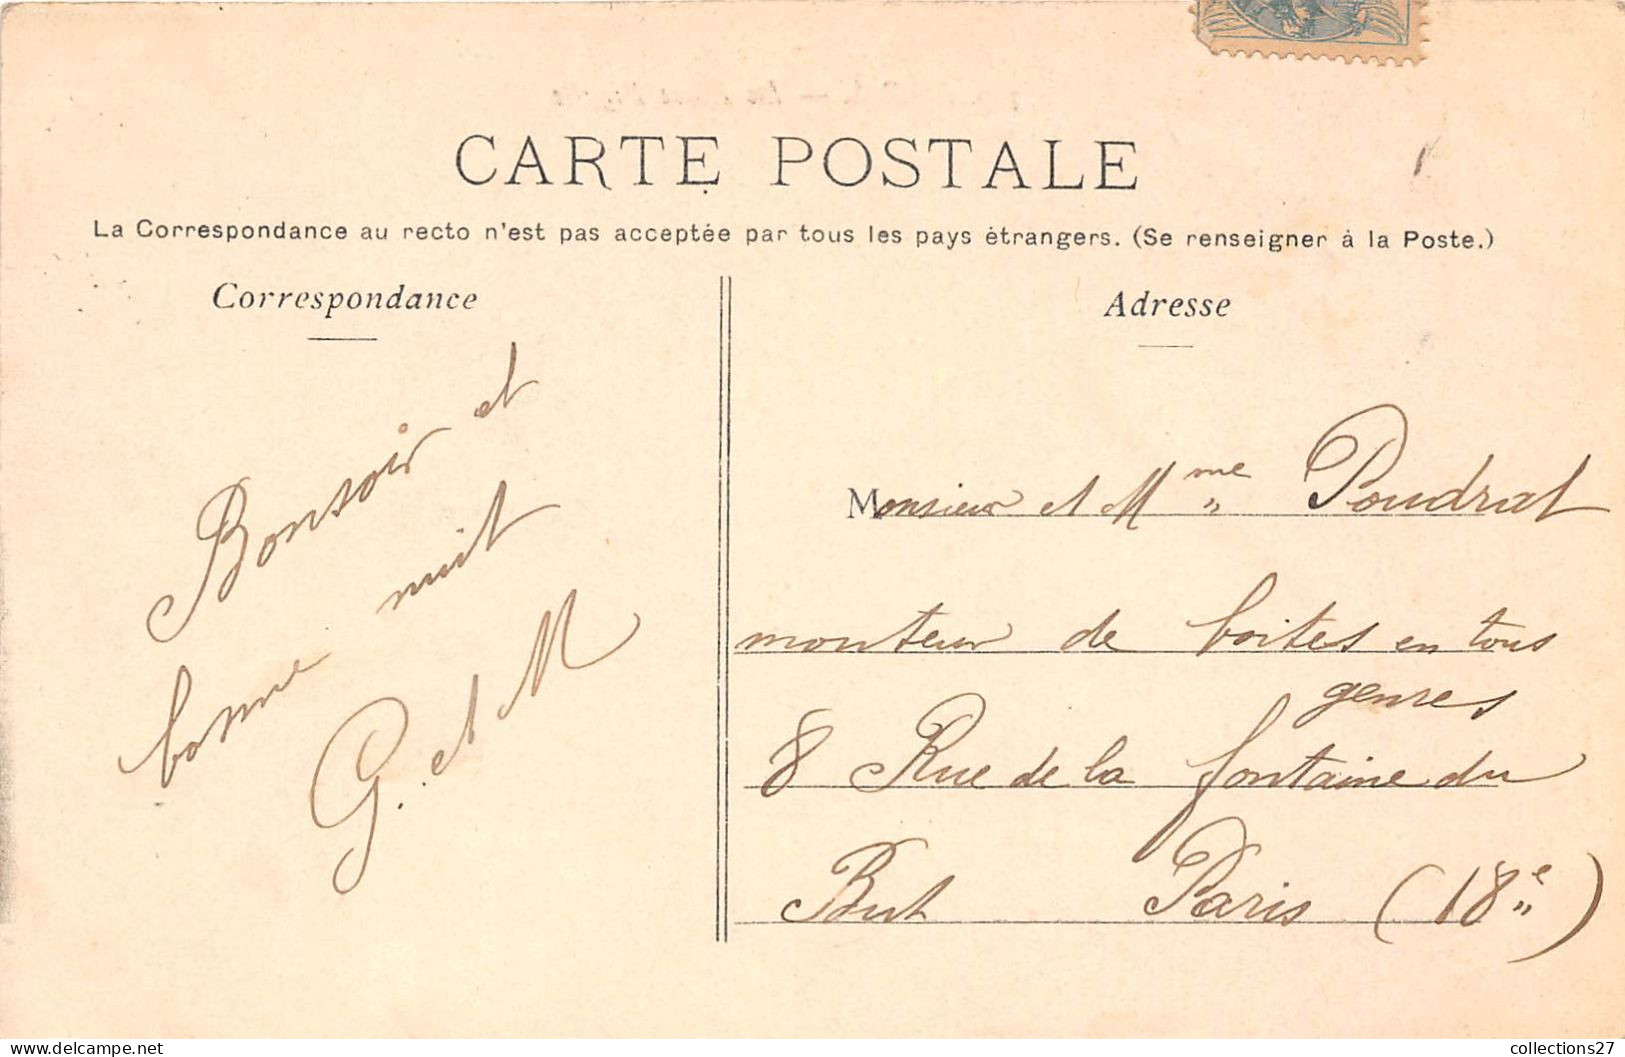 CARTE POSTALE
La Correspondance au recto n'est pas acceptée par tous les pays étrangers. (Se renseigner à la Poste.)
Correspondance
Bonsoir et
bonne nuit
G. et M
Adresse
Monsieur et Mme Poudrat
monteur de boites en tous
genres
8 Rue de la fontaine du
But Paris (18e)
collections27